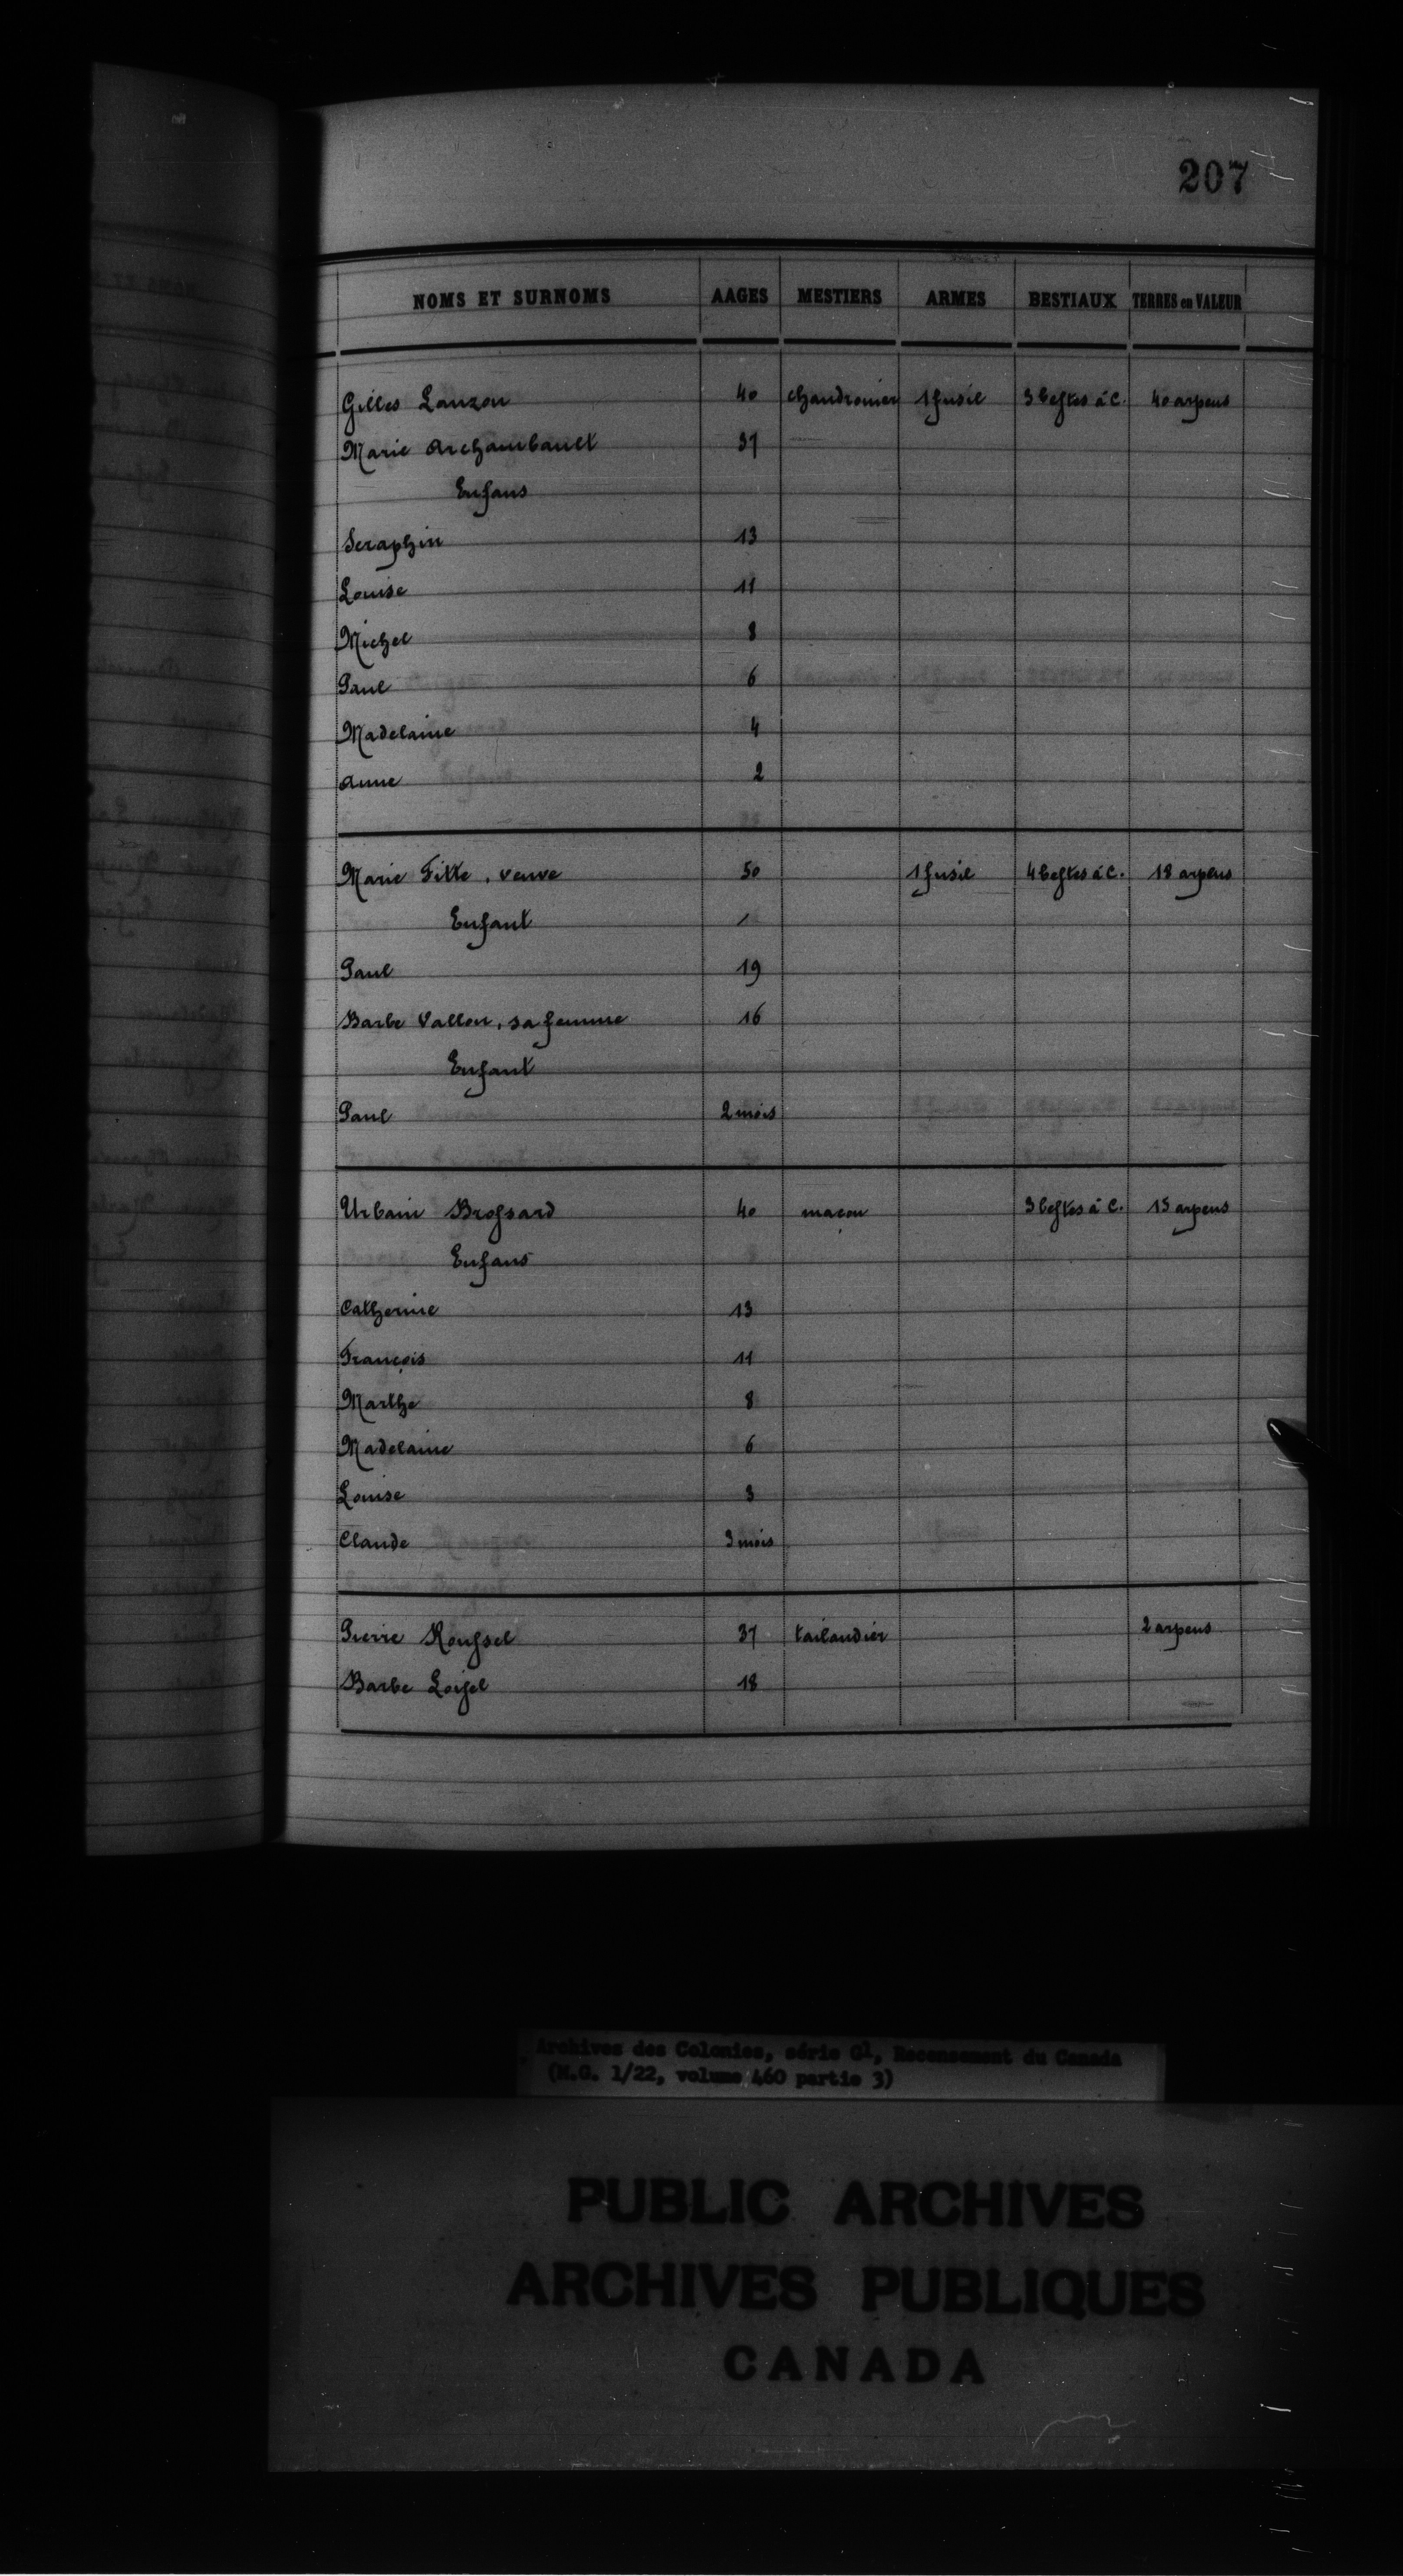 207
NOMS ET SURNOMS AAGES MESTIERS ARMES BESTIAUX TERRES en VALEUR
Gilles Lauzon 40 chaudronier 1 fusil 3 bestes à c. 40 arpens
Marie Archambault 37
Enfans
Seraphin 13
Louise 11
Michel 8
Paul 6
Madelaine 4
Anne 2
Marie Fitte, veuve 50 1 fusil 4 bestes à c. 18 arpens
Enfant
Paul 19
Barbe Vallon, sa femme 16
Enfant
Paul 2 mois
Urbain Brossard 40 maçon 3 bestes à c. 15 arpens
Enfans
Catherine 13
François 11
Marthe 8
Madelaine 6
Louise 3
Claude 3 mois
Pierre Roussel 37 tailandier 2 arpens
Barbe Loisel 18
Archives des Colonies, série G1, Recensement du Canada
(M.G. 1/22, volume 460 partie 3)
PUBLIC ARCHIVES
ARCHIVES PUBLIQUES
CANADA